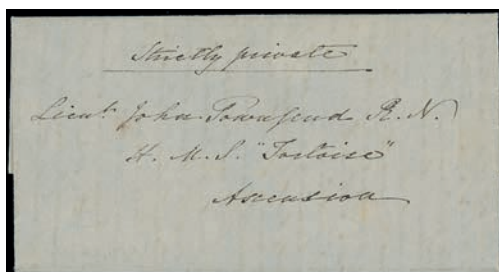 Strictly private
Lieut. John Townsend R. N.
H. M. S. "Tortoise"
Ascension